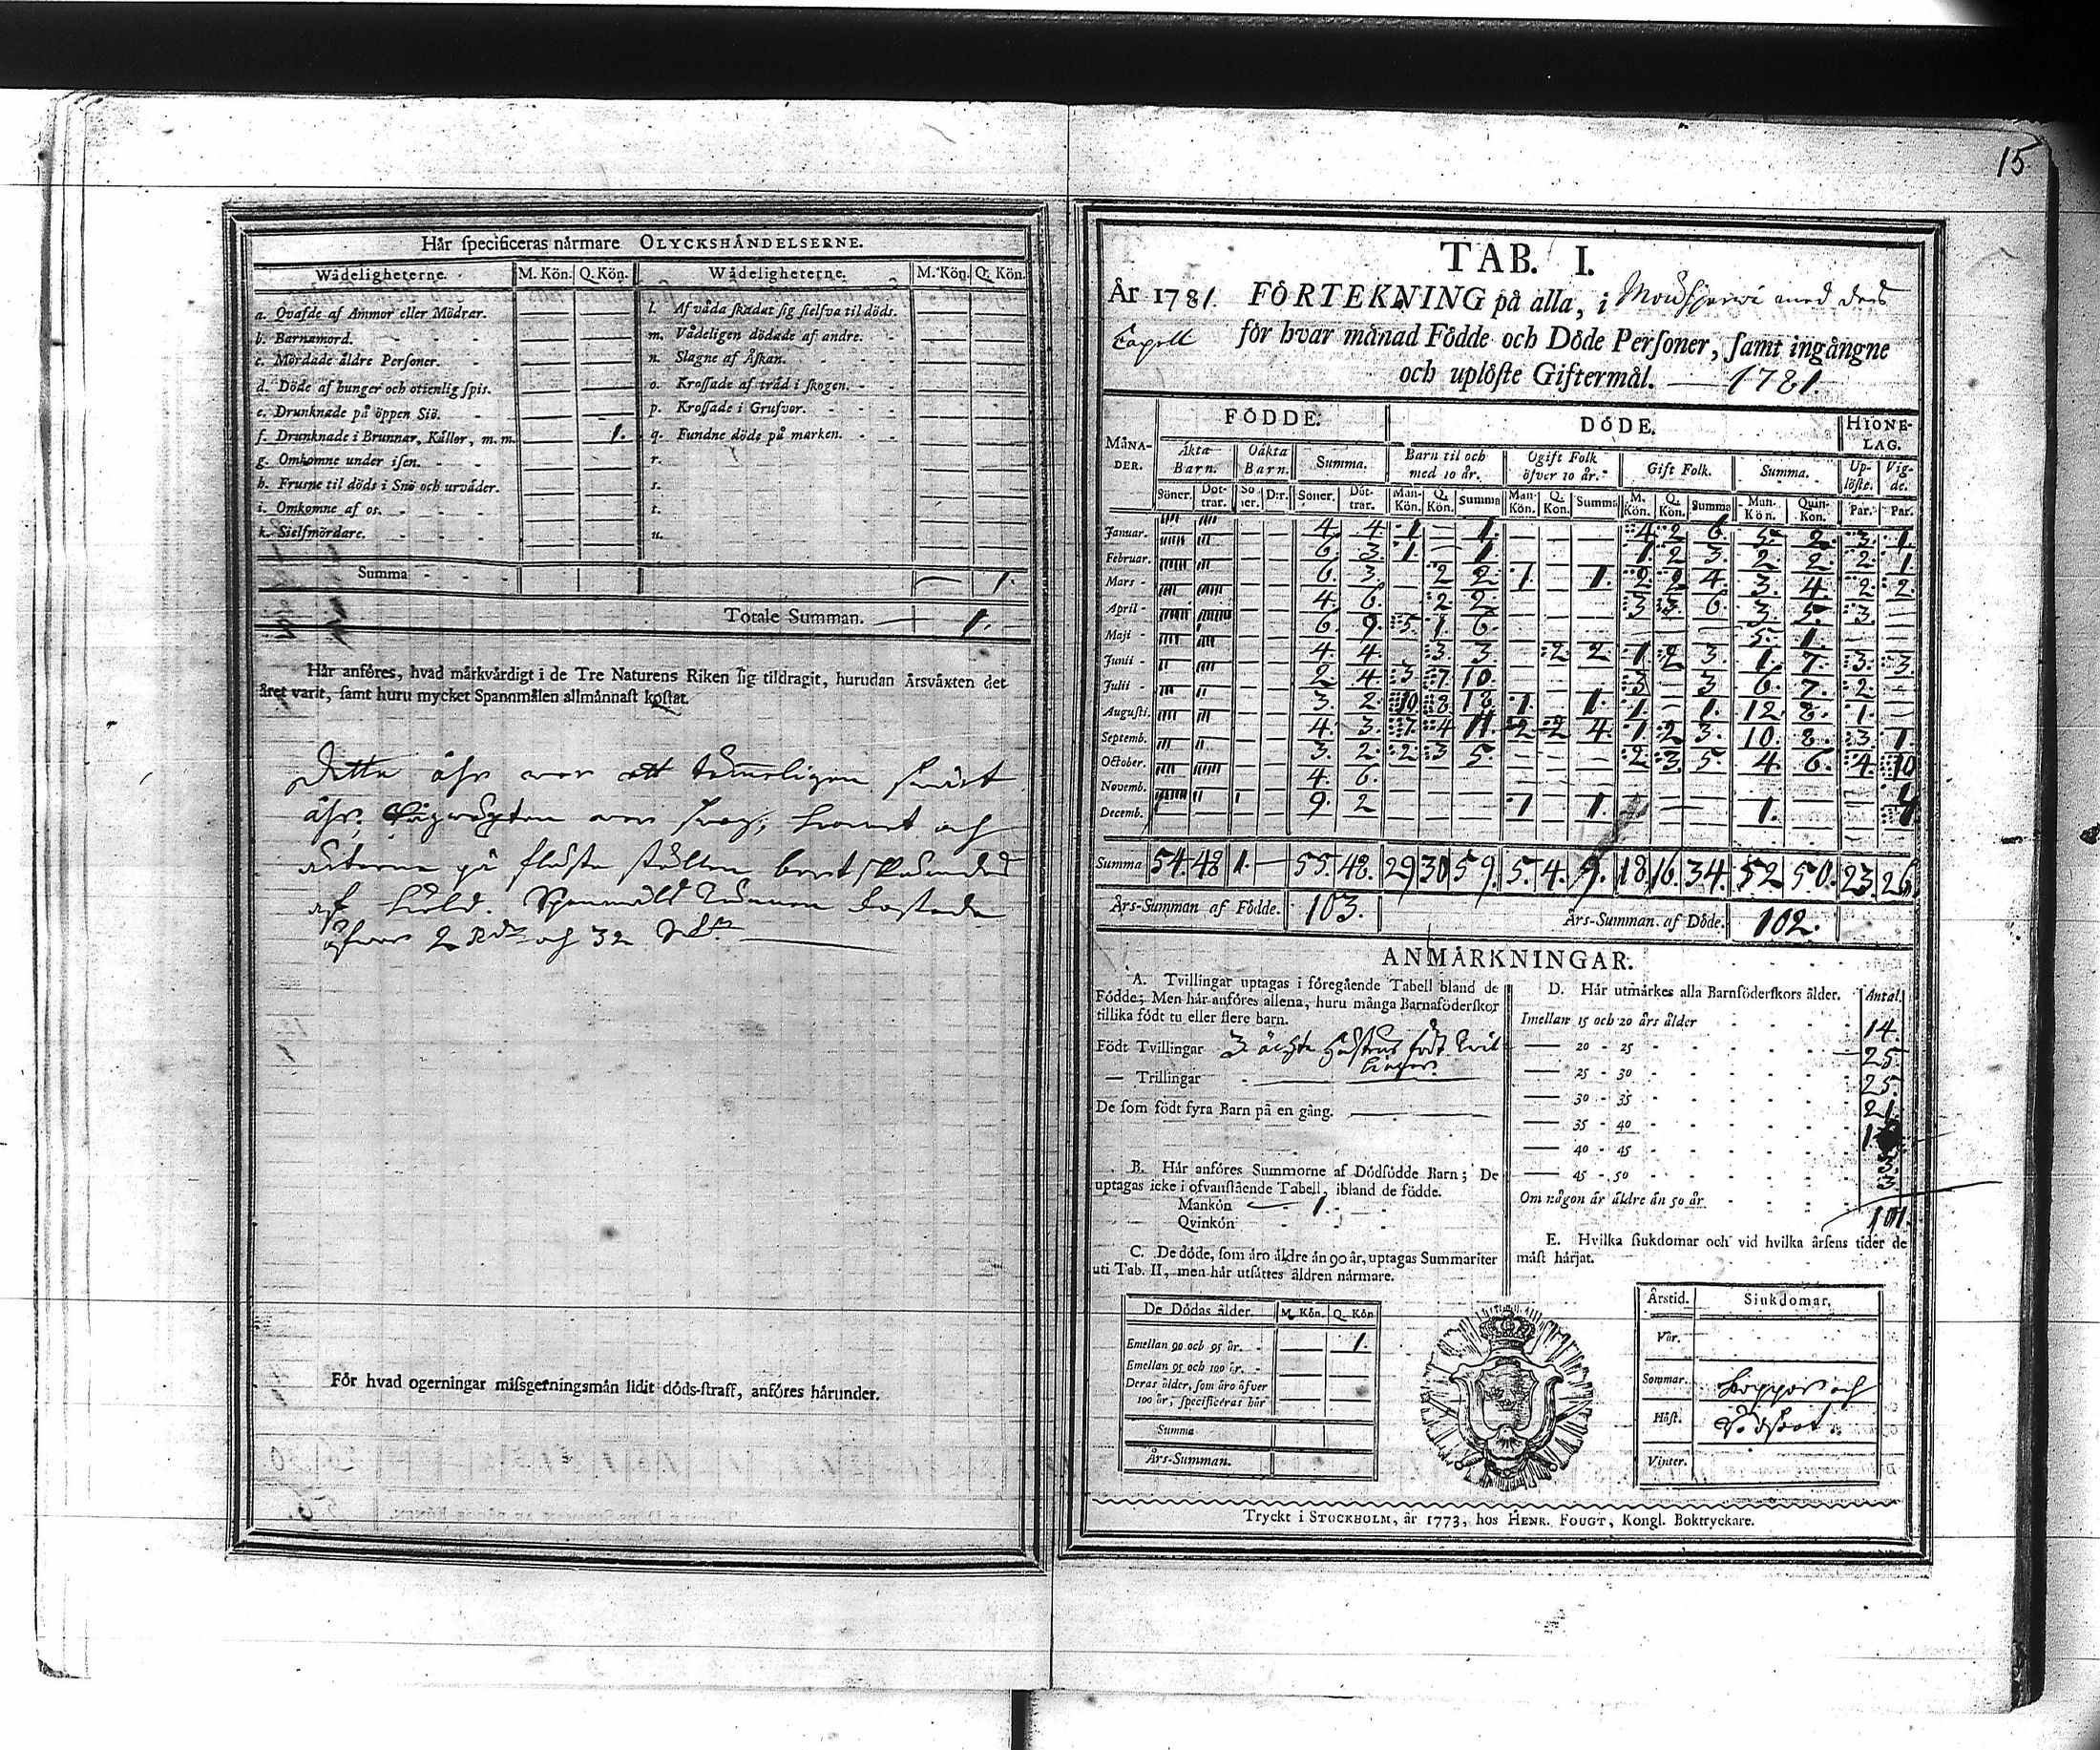 Här specificeras närmare OLYCKSHÄNDELSERNE.
Wådeligheterne. M. Kön. Q. Kön. Wådeligheterne. M. Kön. Q. Kön.
a. Qvafde af Ammor eller Mödrar. — — l. Af våda skadat sig sielfva til döds. — —
b. Barnamord. — — m. Vådeligen dödade af andre. — —
c. Mördade äldre Personer. — — n. Slagne af Åskan. — —
d. Döde af hunger och otienlig spis. — — o. Krossade af träd i skogen. — —
e. Drunknade på öppen Siö. — — p. Krossade i Grufvor. — —
f. Drunknade i Brunnar, Källor, m. m. — 1. q. Fundne döde på marken. — —
g. Omkomne under isen. — — r. — —
h. Frusne til döds i Snö och urväder. — — s. — —
i. Omkomne af os. — — t. — —
k. Sielfmördare. — — u. — —
Summa — 1.
Totale Summan. — 1.
Här anföres, hvad märkvärdigt i de Tre Naturens Riken sig tildragit, hurudan Årsväxten det
året varit, samt huru mycket Spannmålen allmännast kostat.
Detta åhr war ett temmeligen swårt
åhr; wäxten war swag; kornet och
på flesta ställen bort
af kiöld. Spanmåls Tunnan kostade
öfwer 2 Rdr och 32 
För hvad ogerningar missgerningsmän lidit döds-straff, anföres härunder.
15
TAB. I.
År 1781. FÖRTEKNING på alla, i med dess
Capell för hvar månad Födde och Döde Personer, samt ingångne
och uplöste Giftermål. — 1781
MÅNADER. FÖDDE. DÖDE. HIONELAG.
Äkta Barn. Oäkta Barn. Summa. Barn til och med 10 år. Ogift Folk öfver 10 år. Gift Folk. Summa. Uplöste. Vigde.
Söner. Döttrar. Söner. D:r. Söner. Döttrar. Man-Kön. Q. Kön. Summa Man-Kön. Q. Kön. Summa M. Kön. Q. Kön. Summa Man-Kön. Quin-Kön. Par. Par.
Januar. 4. 4 1 — 1. — — — 4 2 6 5. 2. 3. 1.
Februar. 6. 3. 1. — 1 — — — 1 2 3. 2. 2 2. 1
Mars 6. 3. — 2 2 1. — 1 2 2 4. 3. 4. 2 2.
April 4. 6. — 2 2. — — — 3 3. 6. 3 5. 3. —
Maji 6. 9. 5. 1. 6. — — — — — — 5. 1. — —
Junii 4. 4 — 3 3. — 2 2 1 2 3. 1. 7. 3. 3.
Julii 2. 4 3 7 10. — — — 3 — 3 6. 7. 2 —
Augusti. 3. 2 10 8 18. 1. — 1. 1. — 1. 12. 8. 1. —
Septemb. 4. 3. 7. 4 11. 2 2 4. 1 2 3. 10. 8. 3. 1.
October. 3. 2 2 3 5. — — — 2 3. 5 4. 6. 4. 10
Novemb. 4. 6. — — — — — — — — — — — — 4
Decemb. 1 9. 2 — — — 1 — 1. — — — 1. — — 4
Summa 54. 48 1. — 55. 48. 29 30 59. 5. 4. 9. 18 16. 34. 52 50. 23. 26
Års-Summan af Födde. 103. Års-Summan af Döde. 102.
ANMÄRKNINGAR.
A. Tvillingar uptagas i föregående Tabell bland de
Födde; Men här anföres allena, huru många Barnaföderskor
tillika födt tu eller flere barn.
Födt Tvillingar 3 ächta Hustrur födt Twil
lingar.
— Trillingar —
De som födt fyra Barn på en gång. —
B. Här anföres Summorne af Dödfödde Barn; De
uptagas icke i ofvanstående Tabell, ibland de födde.
Mankön — 1.
Qvinkön
C. De döde, som äro äldre än 90 år, uptagas Summariter
uti Tab. II, men här utsättes åldren närmare.
De Dödas ålder. M. Kön. Q. Kön
Emellan 90 och 95 år. — 1.
Emellan 95 och 100 år. — —
Deras ålder, som äro öfver
100 år, specificeras här — —
Summa
Års-Summan.
D. Här utmärkes alla Barnföderskors ålder. Antal.
Imellan 15 och 20 års ålder 14.
— 20 - 25 25.
— 25 - 30 25.
— 30 - 35 21.
— 35 - 40
— 40 - 45 3.
— 45 - 50 3.
Om någon är äldre än 50 år
101.
E. Hvilka siukdomar och vid hvilka årsens tider de
mäst härjat.
Årstid. Siukdomar.
Vår.
Sommar. koppor och
Höst. Rödsoot
Vinter.
Tryckt i STOCKHOLM, år 1773, hos HENR. FOUGT, Kongl. Boktryckare.